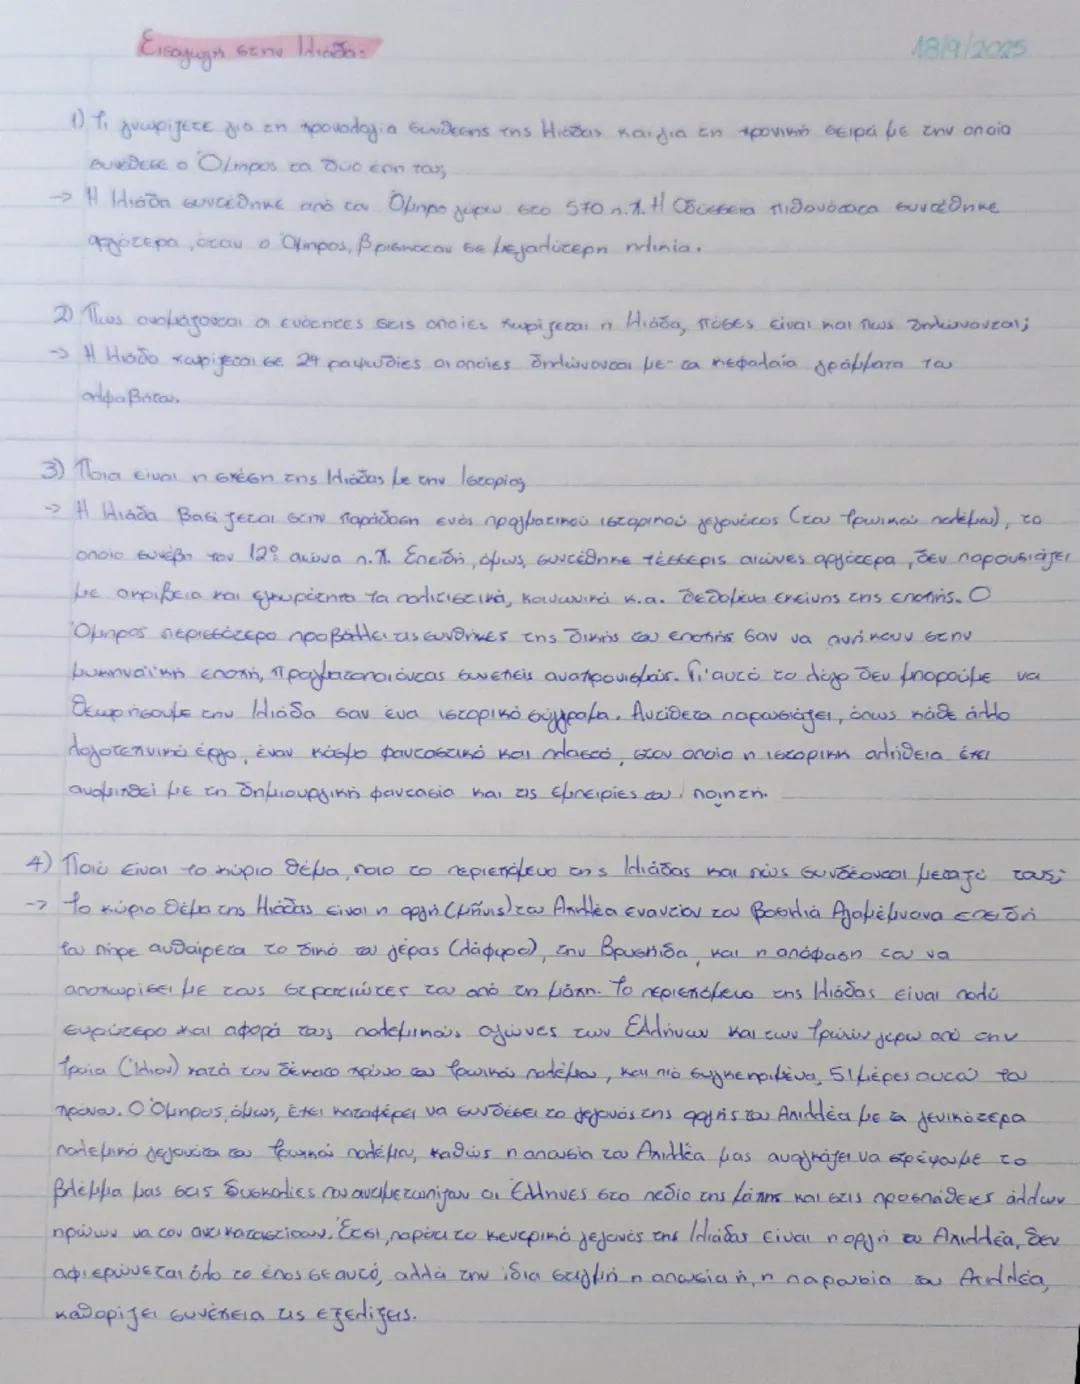 Εισαγωγή στην Ιλιάδα:
18/9/2025
1) Τι γνωρίζετε για τη χρονολογία σύνθεσης της Ιλιάδας και για τη χρονική σειρά με την οποία
συνέθεσε ο Όμηρος τα δύο έπη του;
→ Η Ιλιάδα συντέθηκε από τον Όμηρο γύρω στο 570 π.Χ. Η Οδύσσεια πιθανότατα συντέθηκε
αργότερα, όταν ο Όμηρος, βρισκόταν σε μεγαλύτερη ηλικία.
2) Πως ονομάζονται οι ενότητες στις οποίες χωρίζεται η Ιλιάδα, πόσες είναι και πως δηλώνονται;
→ Η Ιλιάδα χωρίζεται σε 24 ραψωδίες οι οποίες δηλώνονται με τα κεφαλαία γράμματα του
αλφαβήτου.
3) Ποια είναι η σχέση της Ιλιάδας με την Ιστορία;
→ Η Ιλιάδα βασίζεται στην παράδοση ενός πραγματικού ιστορικού γεγονότος (του Τρωικού πολέμου), το
οποίο συνέβη τον 12ο αιώνα π.Χ. Επειδή, όμως, συντέθηκε τέσσερις αιώνες αργότερα, δεν παρουσιάζει
με ακρίβεια και εγκυρότητα τα πολιτιστικά, κοινωνικά κ.α. δεδομένα εκείνης της εποχής. Ο
Όμηρος περισσότερο προβάλλει τις συνθήκες της δικής του εποχής σαν να ανήκουν στην
μυκηναϊκή εποχή, πραγματοποιόντας συνεπείς αναχρονισμούς. Γι'αυτό το λόγο δεν μπορούμε να
θεωρήσουμε την Ιλιάδα σαν ένα ιστορικό σύγγραμα. Αντίθετα παρουσιάζει, όπως κάθε άλλο
λογοτεχνικό έργο, έναν κόσμο φανταστικό και πλαστό, στον οποίο η ιστορική αλήθεια έχει
αναμιχθεί με τη δημιουργική φαντασία και τις εμπειρίες του ποιητή.
4) Ποιο είναι το κύριο θέμα, ποιο το περιεχόμενο της Ιλιάδας και πώς συνδέονται μεταξύ τους;
→ Το κύριο θέμα της Ιλιάδας είναι η οργή (μῆνις) του Αχιλλέα εναντίον του βασιλιά Αγαμέμνονα επειδή
του πήρε αυθαίρετα το δικό του γέρας (λάφυρο), την Βρισηίδα, και η απόφαση του να
αποχωρίσει με τους στρατιώτες του από τη μάχη. Το περιεχόμενο της Ιλιάδας είναι πολύ
ευρύτερο και αφορά τους πολεμικούς αγώνες των Ελλήνων και των Τρώων γύρω από την
Τροία (Ίλιον) κατά τον δέκατο χρόνο του Τρωικού πολέμου, και πιο συγκεκριμένα, 51 μέρες αυτού του
χρόνου. Ο Όμηρος, όμως, έχει καταφέρει να συνδέσει το γεγονός της οργής του Αχιλλέα με τα γενικότερα
πολεμικά γεγονότα του Τρωικού πολέμου, καθώς η απουσία του Αχιλλέα μας αναγκάζει να στρέψουμε το
βλέμμα μας στις δυσκολίες που αντιμετώπιζαν οι Έλληνες στο πεδίο της μάχης και στις προσπάθειες άλλων
ηρώων να τον αντικαταστίσουν. Έτσι, παρότι το κεντρικό γεγονός της Ιλιάδας είναι η οργή του Αχιλλέα, δεν
αφιερώνεται όλο το έπος σε αυτό, αλλά την ίδια στιγμή η απουσία ή, η παρουσία του Αχιλλέα,
καθορίζει συνέπεια τις εξελίξεις.